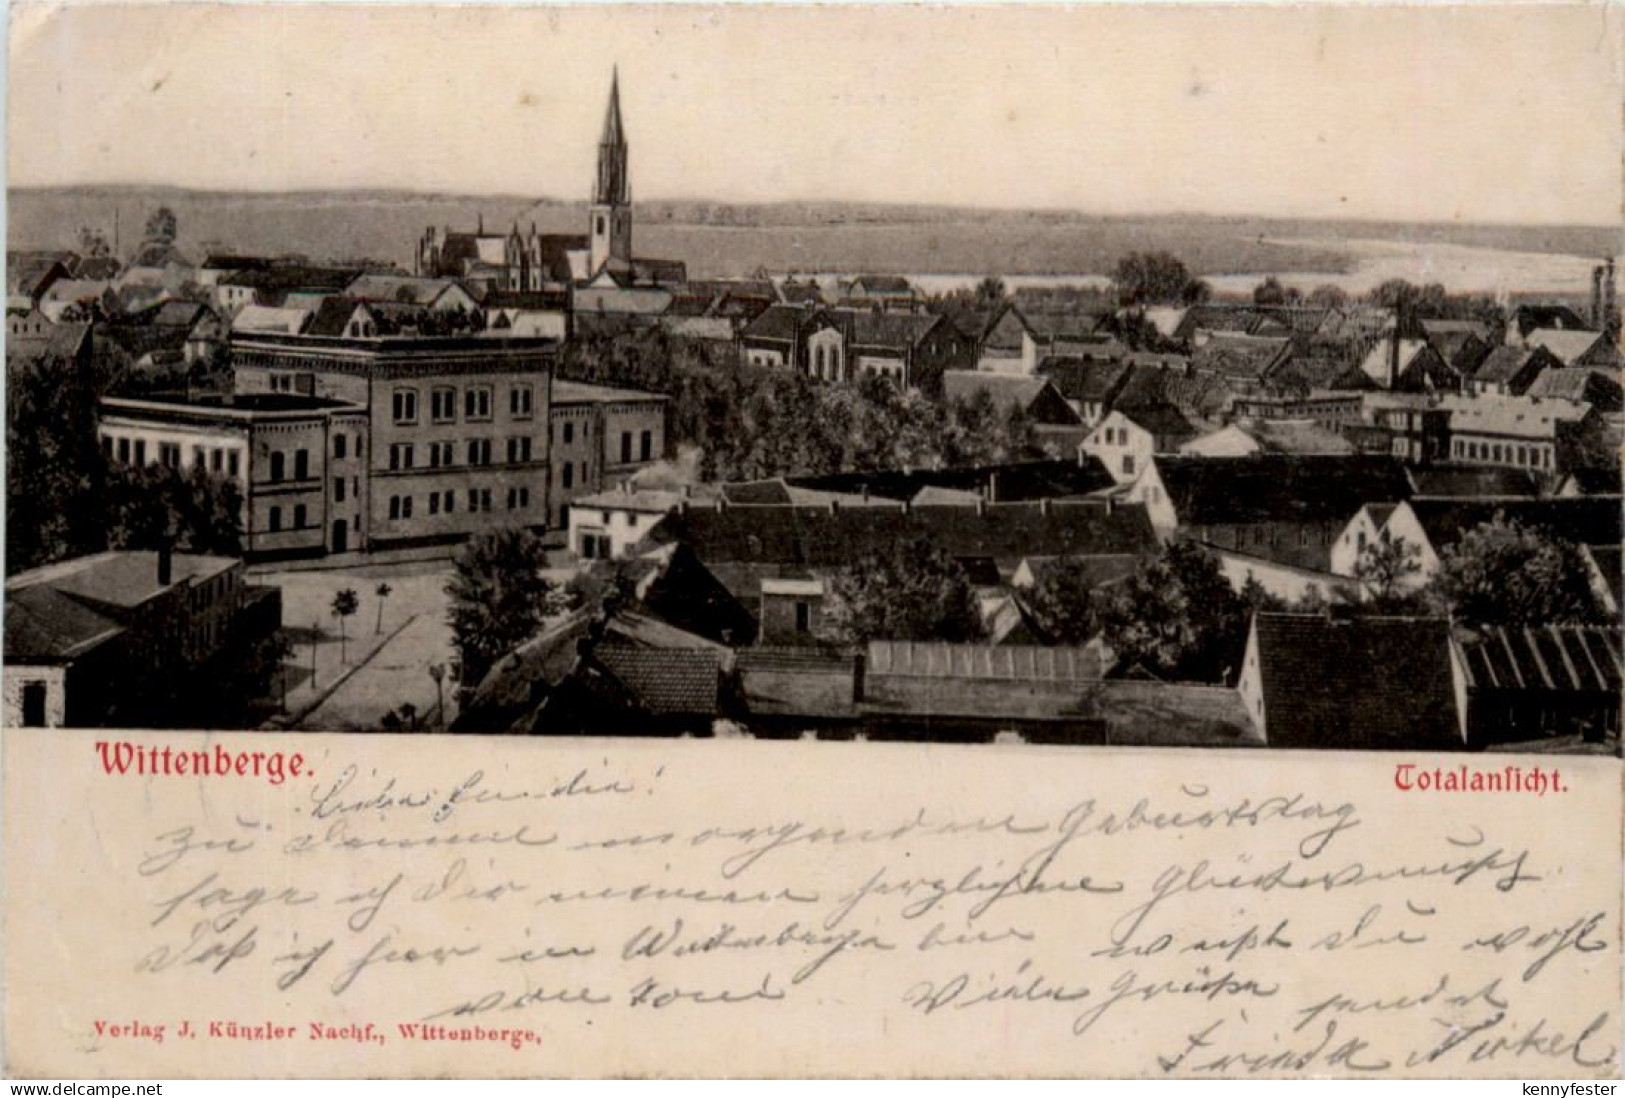 Wittenberge.
Totalansicht.
Liebe
Zu Deinem morgenden Geburtstag
sage ich Dir meinen herzlichen Glückwunsch
Daß ich hier in Wittenberge bin weißt Du wohl
von Toni. Viele Grüße sendet
Frieda Nickel
Verlag J. Künzler Nachf., Wittenberge,
delcampe.net
kennyfester